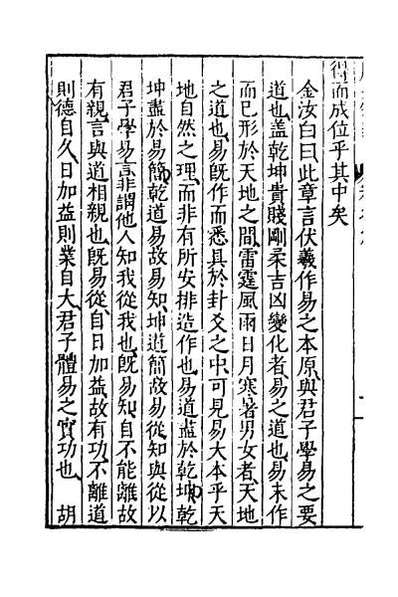 得而成位乎其中矣
金汝白曰此章言伏羲作易之本原與君子學易之要
道也蓋乾坤貴賤剛柔吉凶變化者易之道也易未作
而已形於天地之間雷霆風雨日月寒暑男女者天地
之道也易既作而悉具於卦爻之中可見易大本乎天
地自然之理而非有所安排造作也易道藎於乾坤乾
坤藎於易簡乾道易故易知坤道簡故易從知與從以
君子學易言非謂他人知我從我也既易知自不能離故
有親言與道相親也既易從自日加益故有功不離道
則德自久日加益則業自大君子體易之實功也　胡